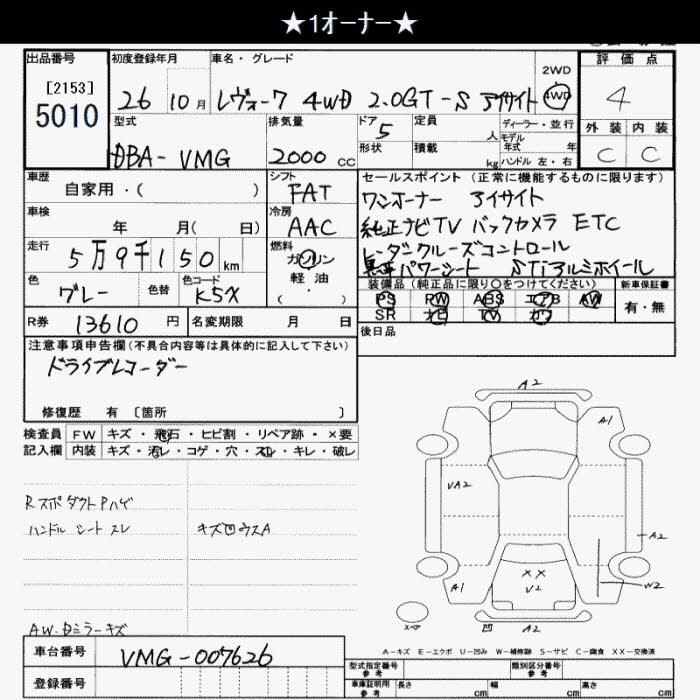 ★1オーナー★
出品番号
[2153]
5010
初度登録年月
26 10月
車名・グレード
レヴォーグ 4WD 2.0GT-S アイサイト
2WD
4WD
評価点
4
外装 内装
C C
型式
DBA-VMG
排気量
2000 CC
ドア 5
形状
定員 人
積載 kg
ディーラー・並行
モデル
年式 年
ハンドル 左・右
車歴
自家用・( )
シフト
FAT
セールスポイント (正常に機能するものに限ります)
ワンオーナー アイサイト
純正ナビTV バックカメラ ETC
レーダークルーズコントロール
パワーシート STiアルミホイール
車検
年 月( 日)
冷房
AAC
走行
5万9千150km
燃料
ガソリン
軽油
・( )
色
グレー
色替
色コード
K5X
装備品(純正品に限り〇をつけてください)
PS RW ABS エアB AW
SR ナビ TV カワ
新車保証書
有・無
R券 13610 円
名変期限 月 日
後日品
注意事項申告欄(不具合内容等は具体的に記入して下さい)
ドライブレコーダー
修復歴 有 〔箇所 〕
検査員 FW キズ・飛石・ヒビ割・リペア跡・×要
記入欄 内装 キズ・汚レ・コゲ・穴・スレ・キレ・破レ
Rスポ ダクトPハゲ
ハンドル シート スレ
キズ凹ウスA
AW.Dミラーキズ
A2
A1
UA2
A2
××
U2
A1
W2
スペア
凹 A2
A-キズ E-エクボ U-凹み W-補修跡 S-サビ C-腐食 XX-交換済
車台番号 VMG-007626
登録番号
型式指定番号
参考
類別区分番号
参考
車庫証明用
参考
長さ cm
幅 cm
高さ cm